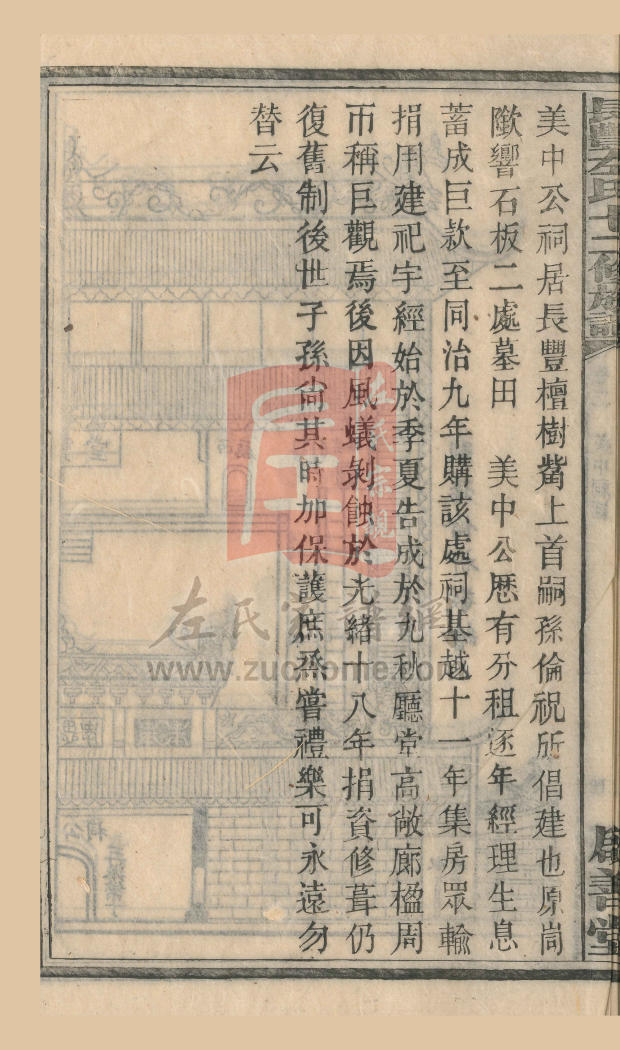 美中公祠居長豐檀樹觜上首嗣孫倫祝所倡建也原崗
隞響石板二處墓田 美中公厯有分租逐年經理生息
蓄成巨款至同治九年購該處祠基越十一年集房眾輸
捐用建祀宇經始於季夏告成於九秋廳堂高敞廊楹周
帀稱巨觀焉後因風蟻剝蝕於光緒十八年捐資修葺仍
復舊制後世子孫尙其時加保護庶烝嘗禮樂可永遠勿
替云
左氏家譜網
www.zuohome.com